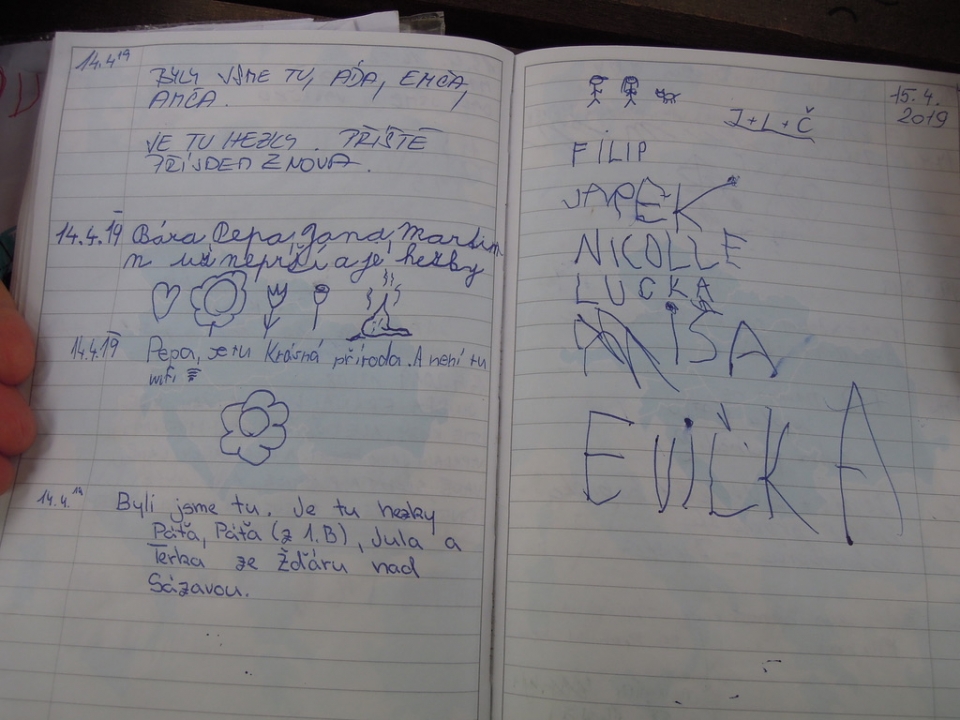 14.4.19
BYLY JSME TU, AĎA, EMČA,
AMČA.
JE TU HEZKY. PŘÍŠTĚ
PŘÍJDEM ZNOVA.
14.4.19 Bára, Pepa, Jana, Martin
už neprší a je hezky
14.4.19 Pepa, Je tu Krásná příroda. A není tu
wifi
14.4.19 Byli jsme tu. Je tu hezky
Páťa, Páťa (z 1.B), Jula a
Terka ze Žďáru nad
Sázavou.
15.4.
2019
J+L+Č
FILIP
NICOLLE
LUCKA
MÍŠA
EVIČKA